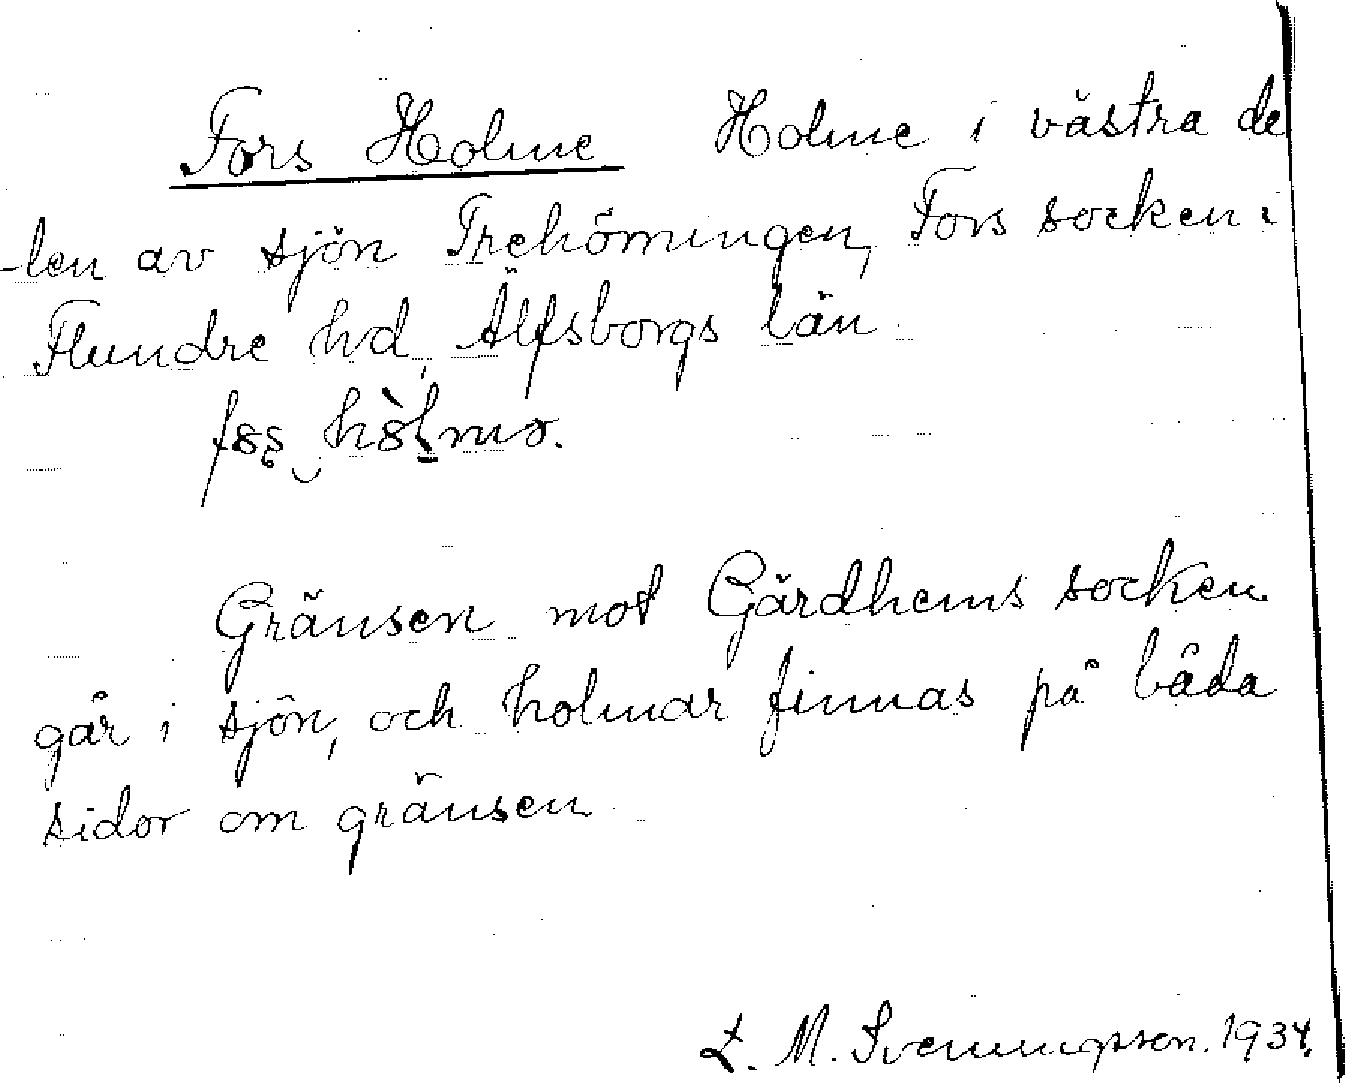 Fors Holme Holme i västra de
-len av sjön Trehörningen, Fors socken i
Flundre hd, Älfsborgs län.
Gränsen mot Gärdhems socken
går i sjön, och holmar finnas på båda
sidor om gränsen
L. M. Svenungsson. 1934.